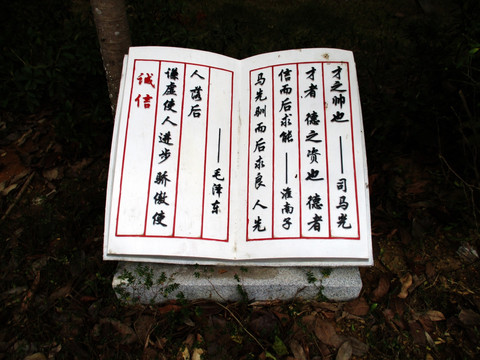 诚信
谦虚使人进步 骄傲使
人落后
——毛泽东
马先驯而后求良 人先
信而后求能 ——淮南子
才者 德之资也 德者
才之帅也 ——司马光